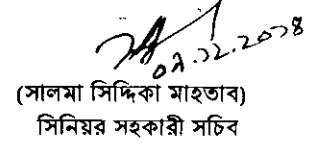 ০৯.১২.২০১৪
(সালমা সিদ্দিকা মাহতাব)
সিনিয়র সহকারী সচিব